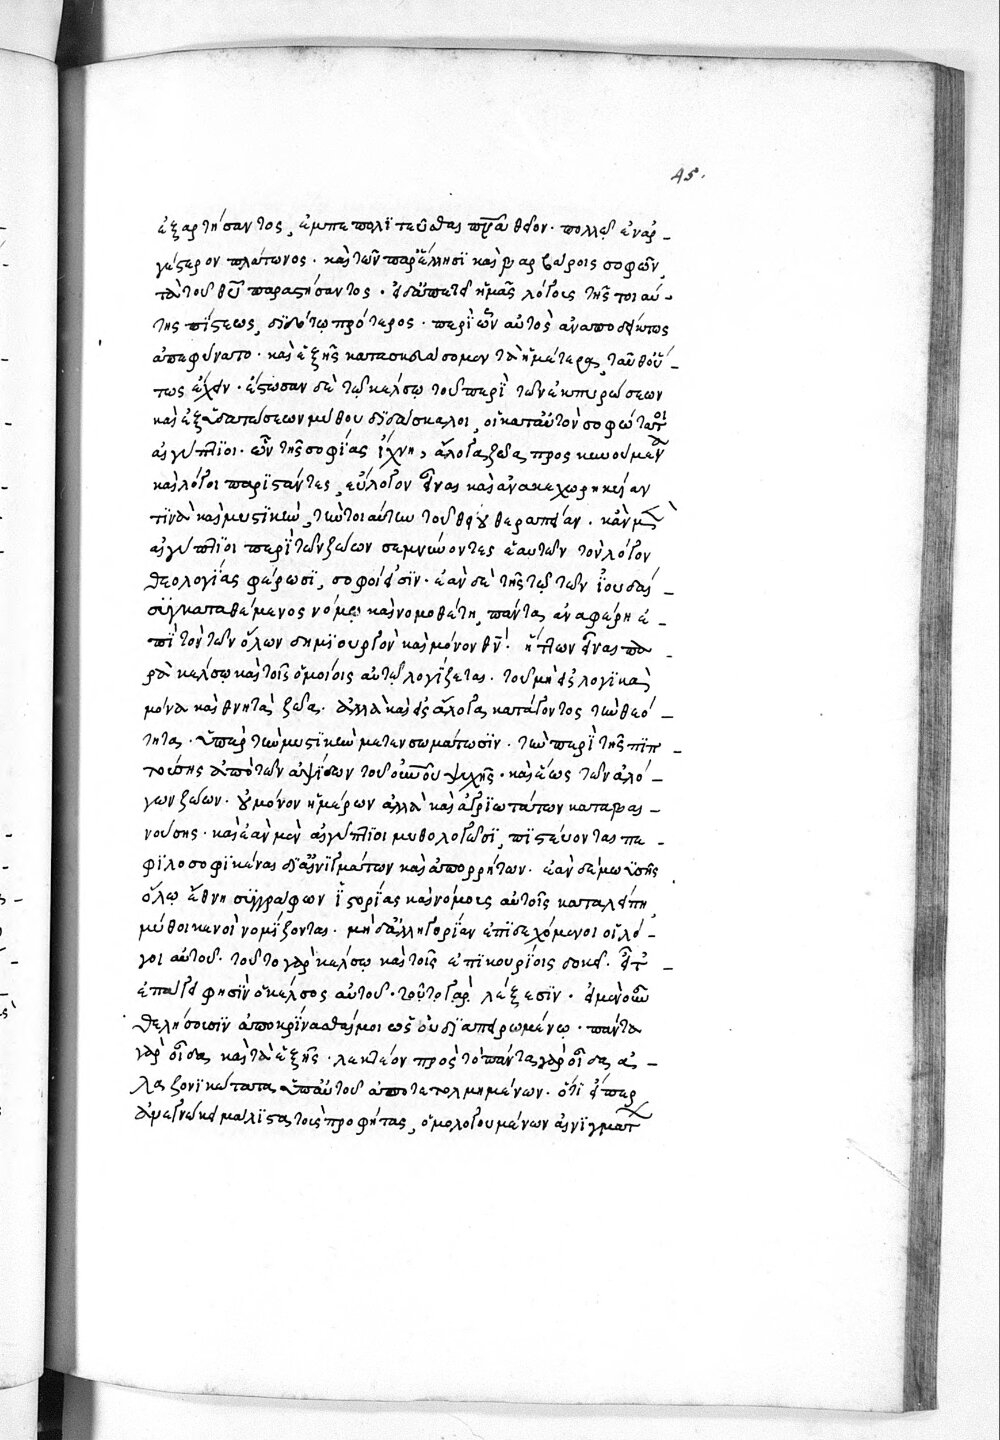 45.
ἐξαρτήσαντος, ἐμπεπολιτεῦσθαι πρᾶον θεόν· πολλῷ ἐναρ-
γέστερον πλάτωνος· καὶ τῶν παρ' ἕλλησι καὶ βαρβάροις σοφῶν,
τὰ τοῦ θῦ παραστήσαντος· εἰ δ' ἀπατᾷ ἡμᾶς λόγοις τῆς τοιαύ-
της πίστεως, διδότω πρότερος· περὶ ὧν αὐτὸς ἀναποδείκτως
ἀπεφήνατο· καὶ ἑξῆς κατασκευάσομεν τὰ ἡμέτερα, ταῦθ' οὕ-
τως ἔχειν· ἔστωσαν δὲ τῷ κέλσῳ τοῦ περὶ τῶν ἐκπυρώσεων
καὶ ἐξυδατώσεων μύθου διδάσκαλοι, οἱ κατ' αὐτὸν σοφώτατοι
αἰγύπτιοι· ὧν τῆς σοφίας ἴχνη, ἄλογα ζῶα προσκυνούμενα
καὶ λόγοι παριστάντες, εὔλογον εἶναι καὶ ἀνακεχωρηκυῖαν
τινὰ καὶ μυστικὴν, τὴν τοιαύτην τοῦ θείου θεραπείαν· κἂν μὲν
αἰγύπτιοι περὶ τῶν ζώων σεμνύνοντες ἑαυτῶν τὸν λόγον
θεολογίας φέρωσι, σοφοί εἰσιν· ἐὰν δὲ τῆς τῷ τῶν ἰουδαί-
συγκαταθέμενος νόμῳ καὶ νομοθέτῃ, πάντα ἀναφέρῃ ἐ-
πὶ τὸν τῶν ὅλων δημιουργὸν καὶ μόνον θν· ἥττων εἶναι πα-
ρὰ κέλσῳ καὶ τοῖς ὁμοίοις αὐτῷ λογίζεται· τοῦ μὴ εἰς λογικὰ
μόνα καὶ θνητὰ ζῶα· ἀλλὰ καὶ εἰς ἄλογα κατάγοντος τὴν θεό-
τητα· ὑπὲρ τὴν μυστικὴν μετενσωμάτωσιν· τὴν περὶ τῆς πιπ-
τούσης ἀπὸ τῶν ἁψίδων τοῦ οὐνοῦ ψυχῆς· καὶ ἕως τῶν ἀλό-
γων ζώων· οὐ μόνον ἡμέρων ἀλλὰ καὶ ἀγριωτάτων καταβαι-
νούσης· καὶ ἐὰν μὲν αἰγύπτιοι μυθολογῶσι, πιστεύονται πε-
φιλοσοφικέναι δι' αἰνιγμάτων καὶ ἀπορρήτων· ἐὰν δὲ μωϋσῆς
ὅλῳ ἔθνη συγγράφων ἱστορίας καὶ νόμους αὐτοῖς καταλείπῃ,
μῦθοι κενοὶ νομίζονται· μηδ' ἀλληγορίαν ἐπιδεχόμενοι οἱ λό-
γοι αὐτοῦ· τοῦτο γὰρ κέλσῳ καὶ τοῖς ἐπικουρίοις δοκεῖ· εἶτ'
ἐπάγει φησὶν ὁ κέλσος αὐτοῦ· τοῦτο γὰρ λέξεσιν· εἰ μὲν οὖν
θελήσουσιν ἀποκρίνασθαί μοι ὡς οὐ διαπειρωμένῳ· πάντα
γὰρ οἶδα, καὶ τὰ ἑξῆς· λεκτέον πρὸς τὸ πάντα γὰρ οἶδα, ἀ-
λαζονικώτατα, ὑπ' αὐτοῦ ἀποτετολμημένων· ὅτι εἴπερ
ἀνεγνώκει μάλιστα τοὺς προφήτας, ὁμολογουμένων αἰνιγμάτων